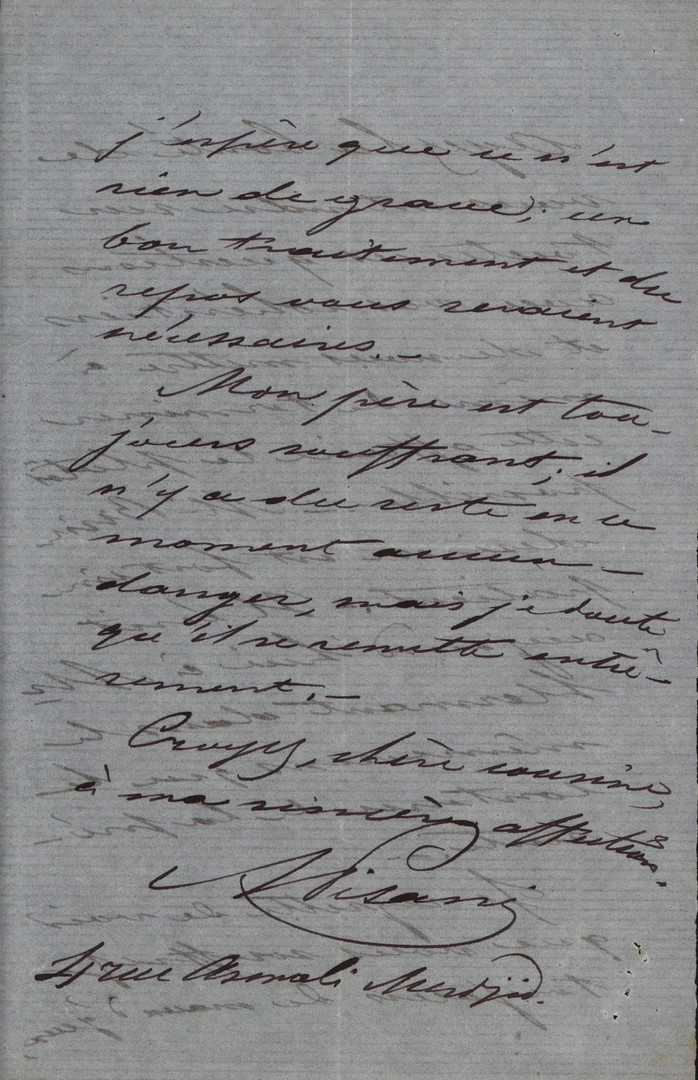 j'espère que ce n'est
rien de grave; un
bon traitement et du
repos vous seraient
nécessaires. —
Mon père est tou-
jours souffrant; il
n'y a du reste en ce
moment aucun —
danger, mais je doute
qu'il se remette entiè-
rement. —
Croyez, chère cousine,
à ma sincère affection.
A Pisani
4 rue Asmali Mesdjid.